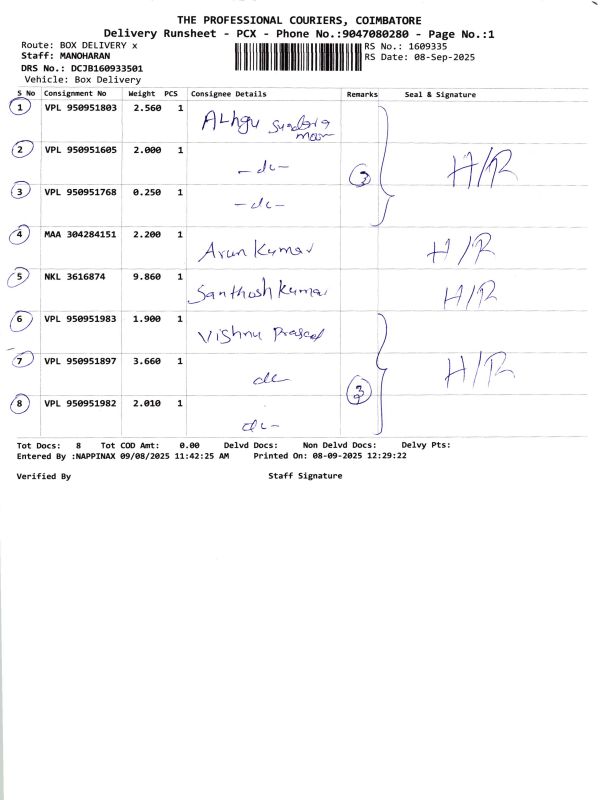 THE PROFESSIONAL COURIERS, COIMBATORE
Delivery Runsheet - PCX - Phone No.:9047080280 - Page No.:1
Route: BOX DELIVERY x
RS No.: 1609335
Staff: MANOHARAN
RS Date: 08-Sep-2025
DRS No.: DCJB160933501
Vehicle: Box Delivery
S No Consignment No Weight PCS Consignee Details Remarks Seal & Signature
1 VPL 950951803 2.560 1
2 VPL 950951605 2.000 1 -dc- 3 H/R
3 VPL 950951768 0.250 1 -dc-
4 MAA 304284151 2.200 1 Arun Kumar H/R
5 NKL 3616874 9.860 1 Santhosh Kumar H/R
6 VPL 950951983 1.900 1 Vishnu Prasad
7 VPL 950951897 3.660 1 dc 3 H/R
8 VPL 950951982 2.010 1 dc-
Tot Docs: 8 Tot COD Amt: 0.00 Delvd Docs: Non Delvd Docs: Delvy Pts:
Entered By :NAPPINAX 09/08/2025 11:42:25 AM Printed On: 08-09-2025 12:29:22
Verified By Staff Signature